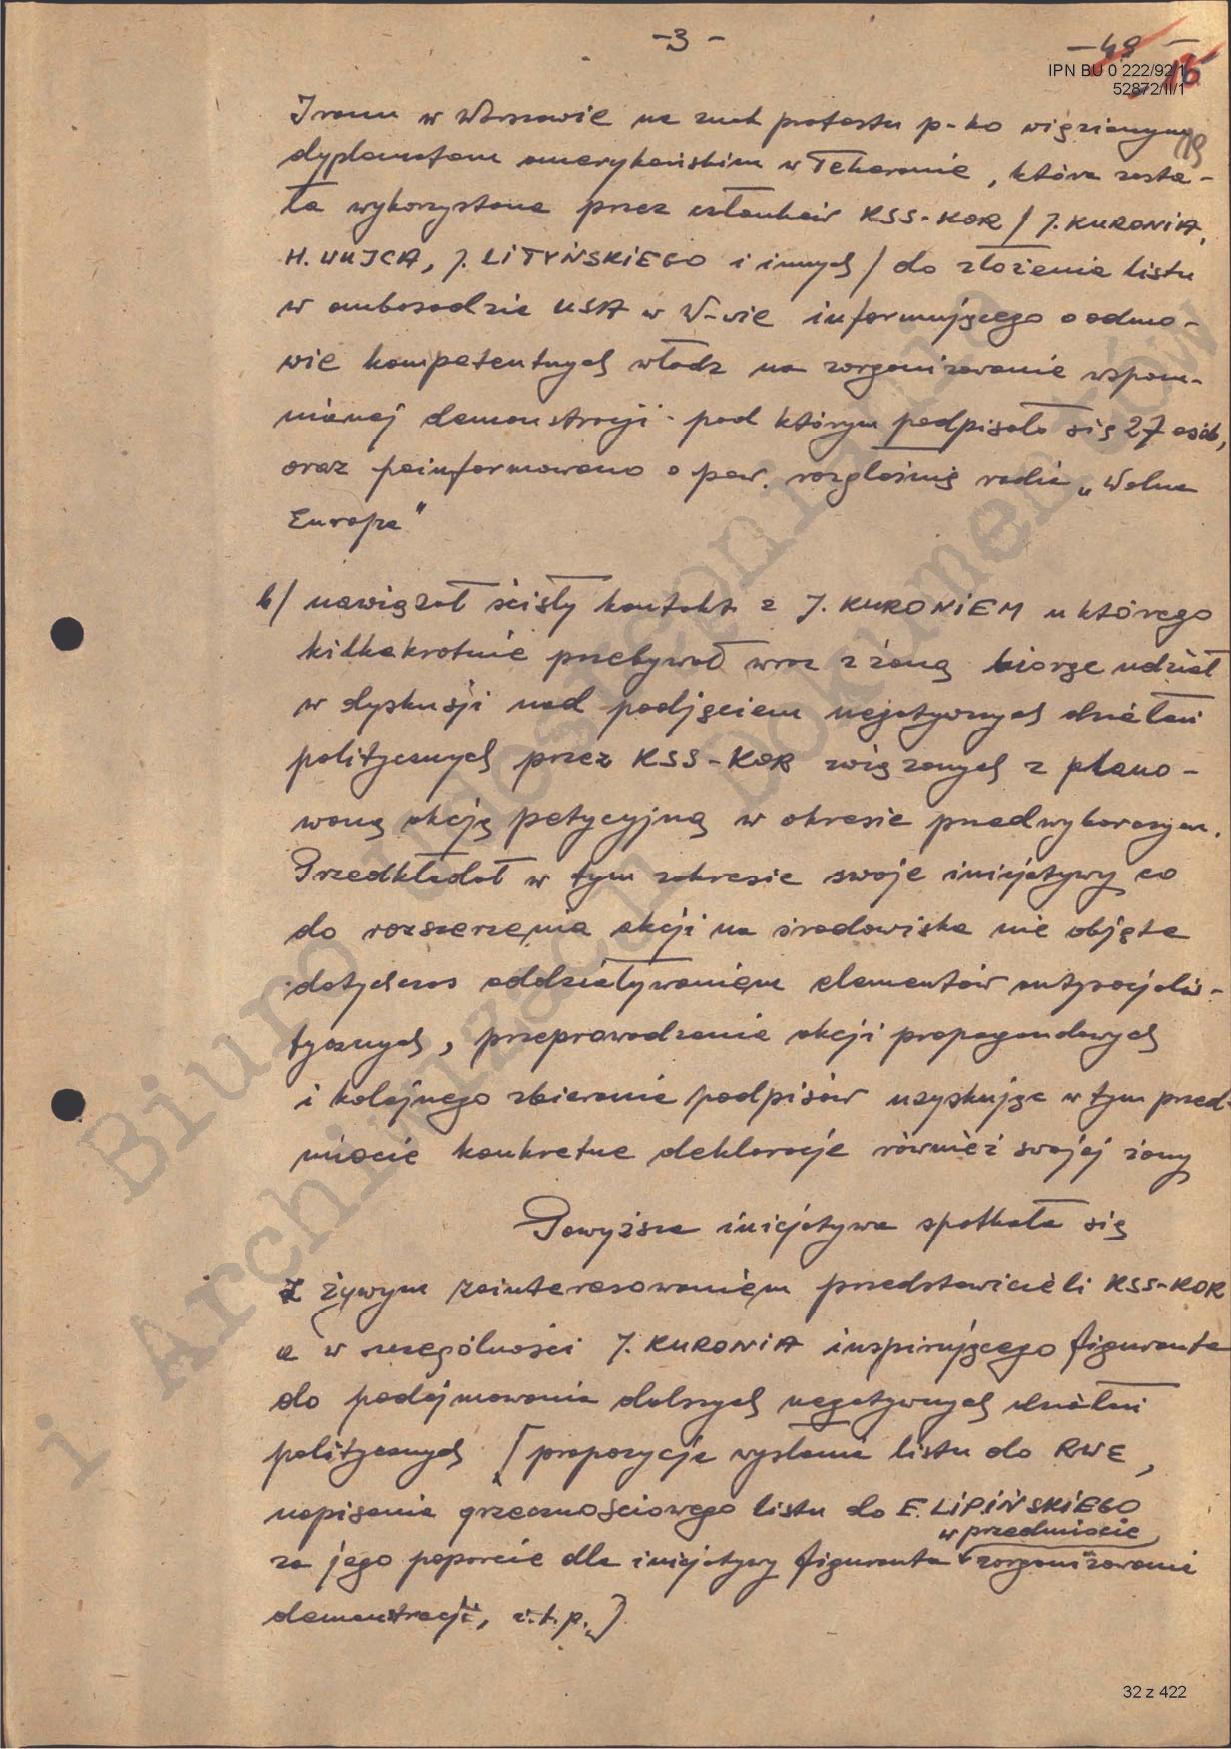 -3-
-49-
16
IPN BU 0 222/92/1
52872/II/1
19
Iranu w Warszawie na znak protestu p-ko więzionym
dyplomatom amerykańskim w Teheranie, która zosta-
ła wykorzystana przez członków KSS-KOR / J. KURONIA,
H. WUJCA, J. LITYŃSKIEGO i innych / do złożenia listu
w ambasadzie USA w W-wie informującego o odmo-
wie kompetentnych władz na zorganizowanie wspom-
nianej demonstracji - pod którym podpisało się 27 osób,
oraz poinformowano o pow. rozgłośnię radia „Wolna
Europa"
b/ nawiązał ścisły kontakt z J. KURONIEM u którego
kilkakrotnie przebywał wraz z żoną biorąc udział
w dyskusji nad podjęciem negatywnych działań
politycznych przez KSS-KOR związanych z plano-
waną akcją petycyjną w okresie przedwyborczym.
Przedkładał w tym zakresie swoje inicjatywy co
do rozszerzenia akcji na środowiska nie objęte
dotychczas oddziaływaniem elementów antysocjalis-
tycznych, przeprowadzenie akcji propagandowych
i kolejnego zbieranie podpisów uzyskując w tym przed-
miocie konkretne deklaracje również swojej żony
Powyższa inicjatywa spotkała się
z żywym zainteresowaniem przedstawicieli KSS-KOR
a w szczególności J. KURONIA inspirującego figuranta
do podejmowania dalszych negatywnych działań
politycznych [propozycja wysłania listu do RWE,
napisania grzecznościowego listu do E. LIPIŃSKIEGO
w przedmiocie
za jego poparcie dla inicjatywy figuranta zorganizowania
demonstracji, i.t.p.]
32 z 422
Biuro Udostępniania
i Archiwizacji Dokumentów